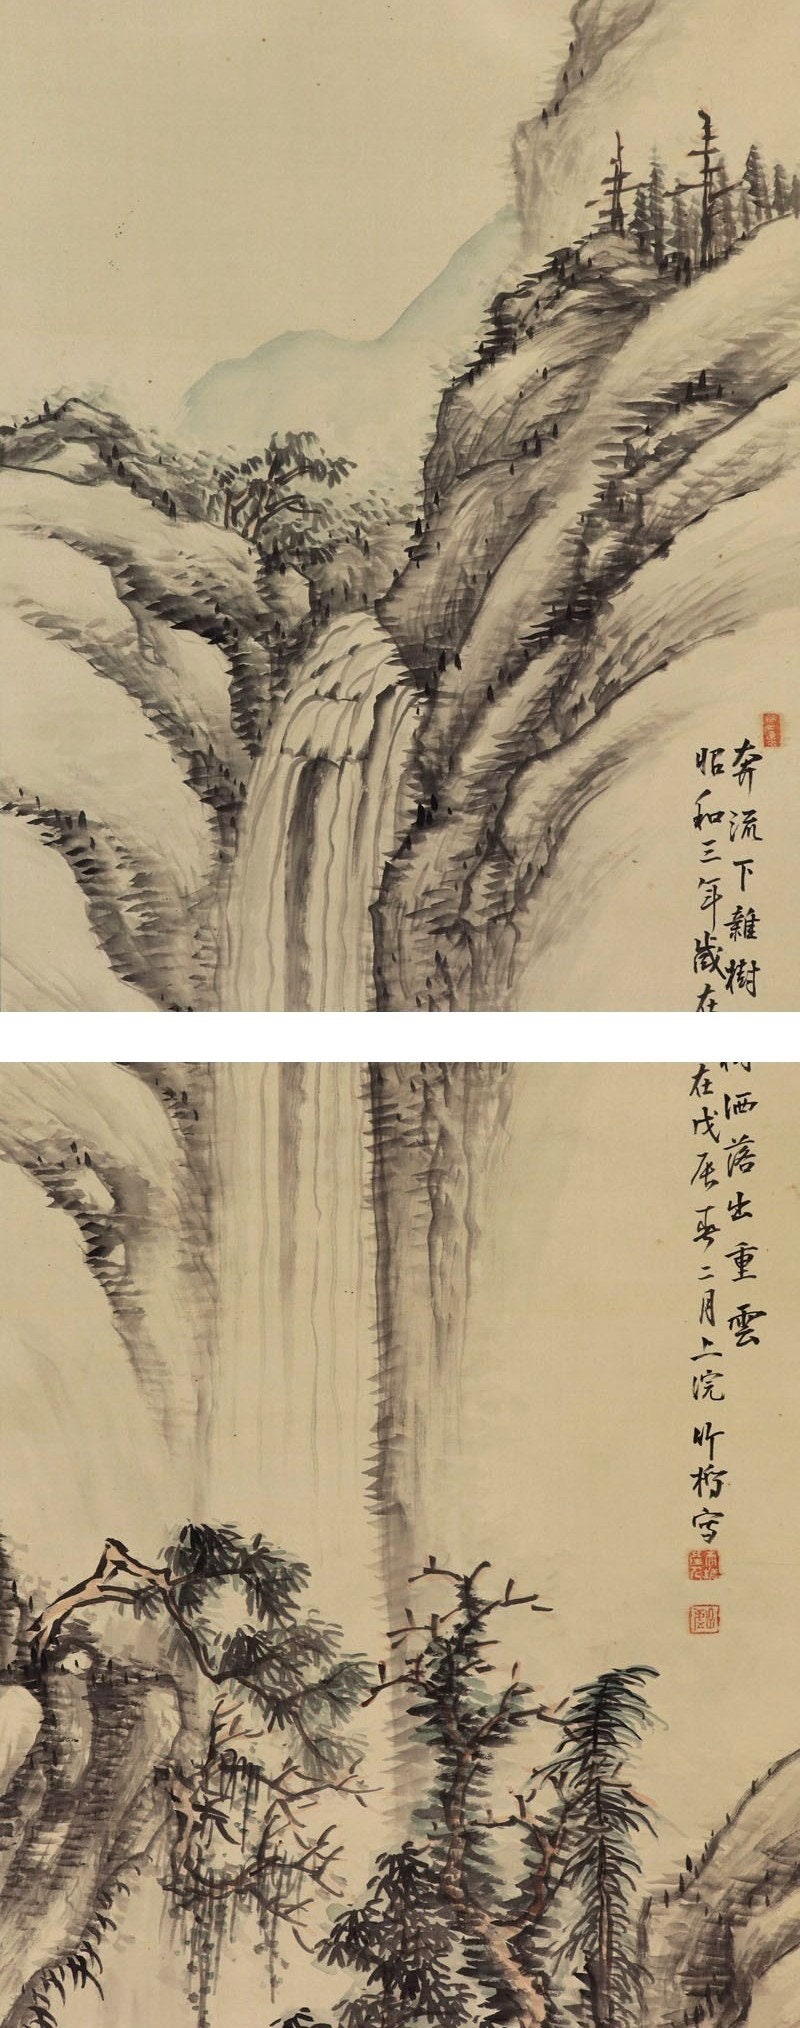 奔流下雜樹洒落出重雲
昭和三年歳在戊辰春二月上浣竹橋写